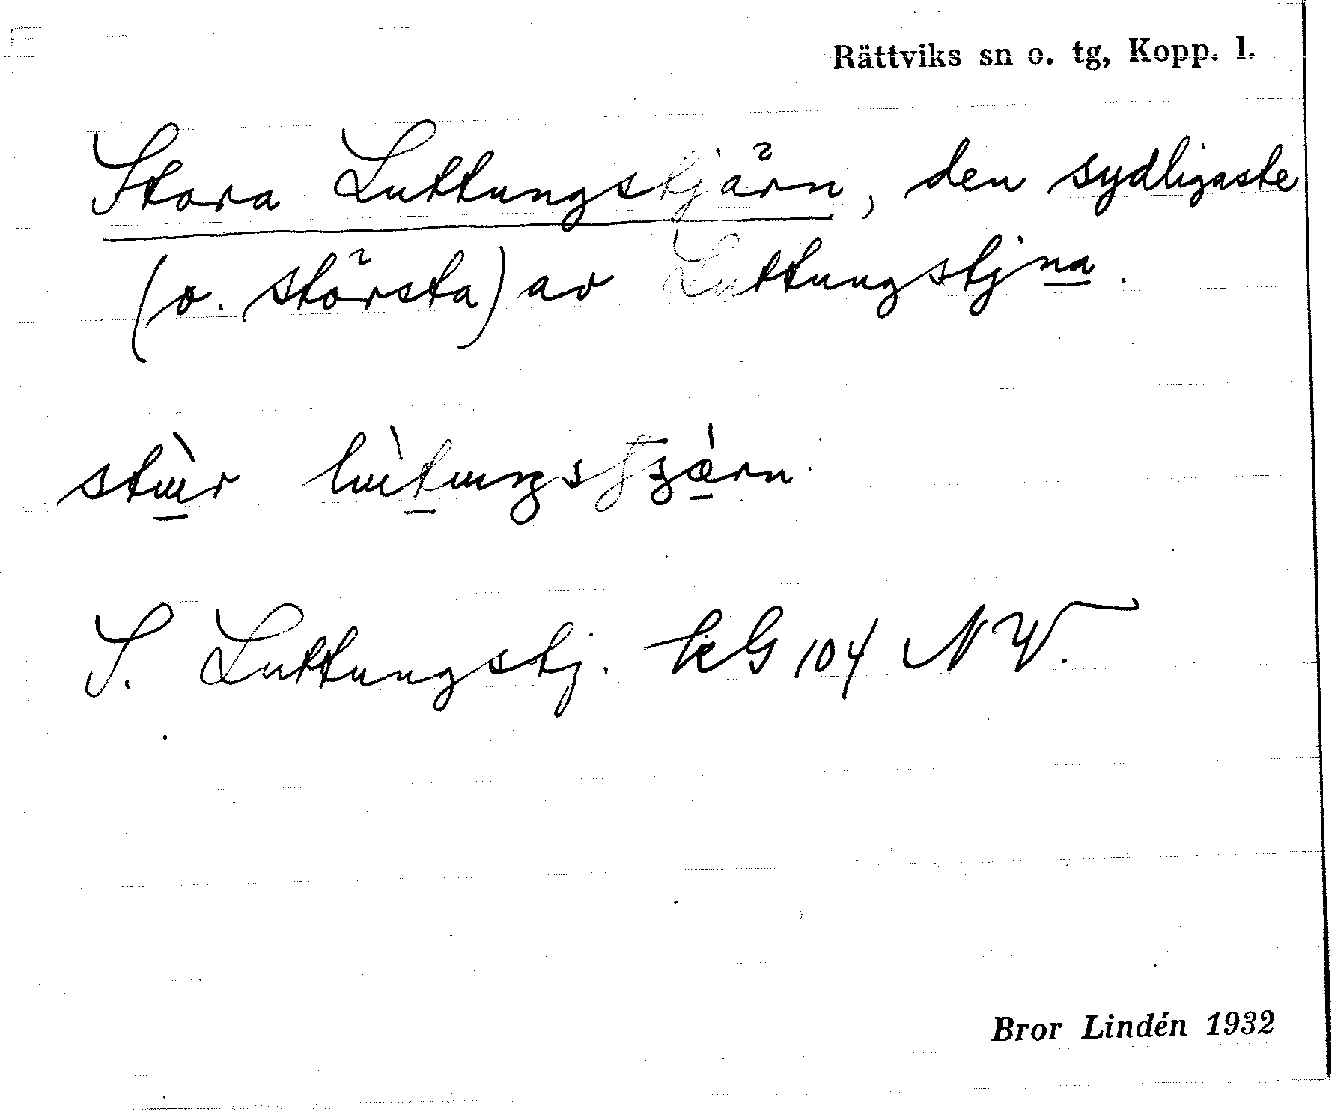 Rättviks sn o. tg, Kopp. l.
Stora Luttungstjärn, den sydligaste
(o. största) av Luttungstjna.
S. Luttungstj. kG 104 NW.
Bror Lindén 1932